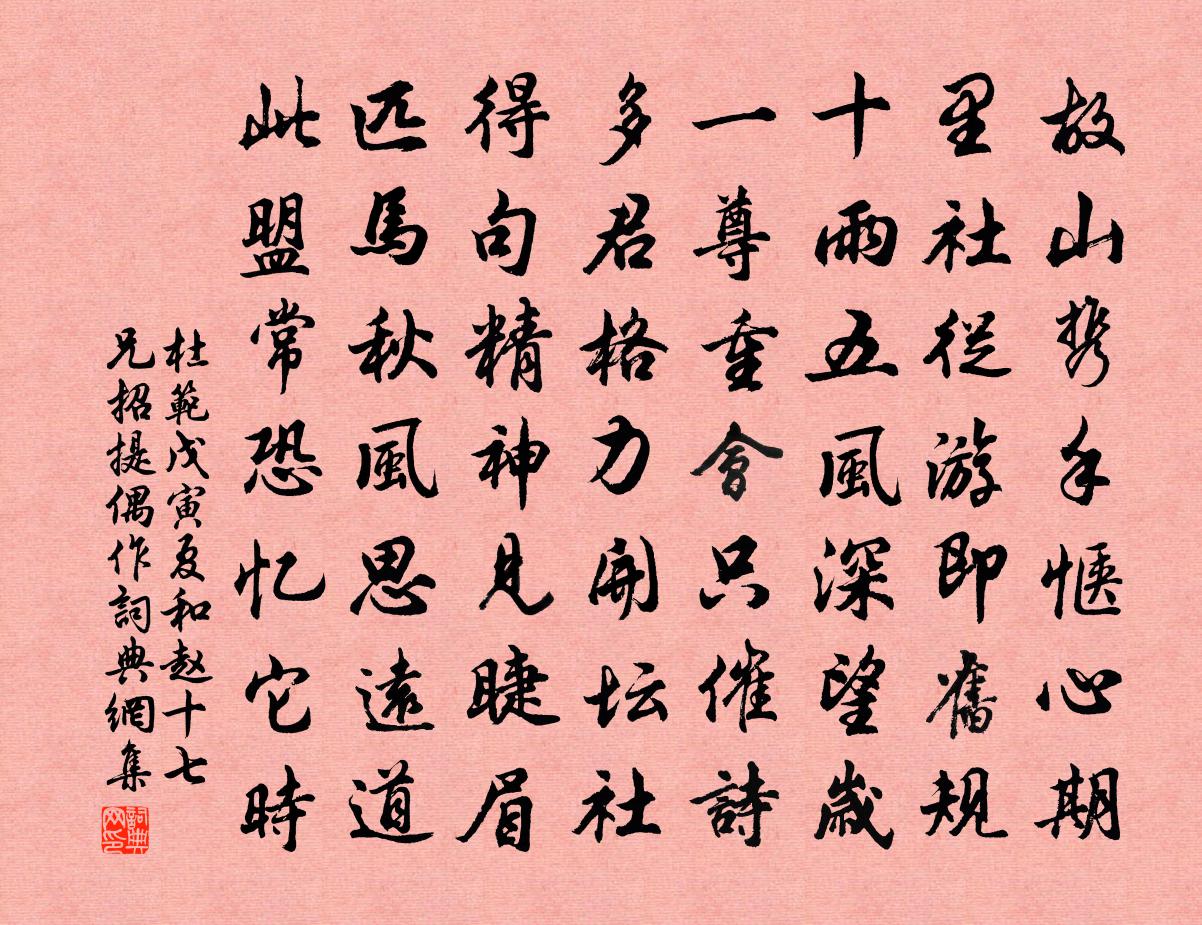 故山携手惬心期
里社従游即舊規
十雨五風深望歳
一尊重會只催詩
多君格力開坛社
得句精神見睫眉
匹馬秋風思遠道
此盟常恐忆它時
杜範戊寅夏和赵十七
兄招提偶作詞典網集
詞典
网印